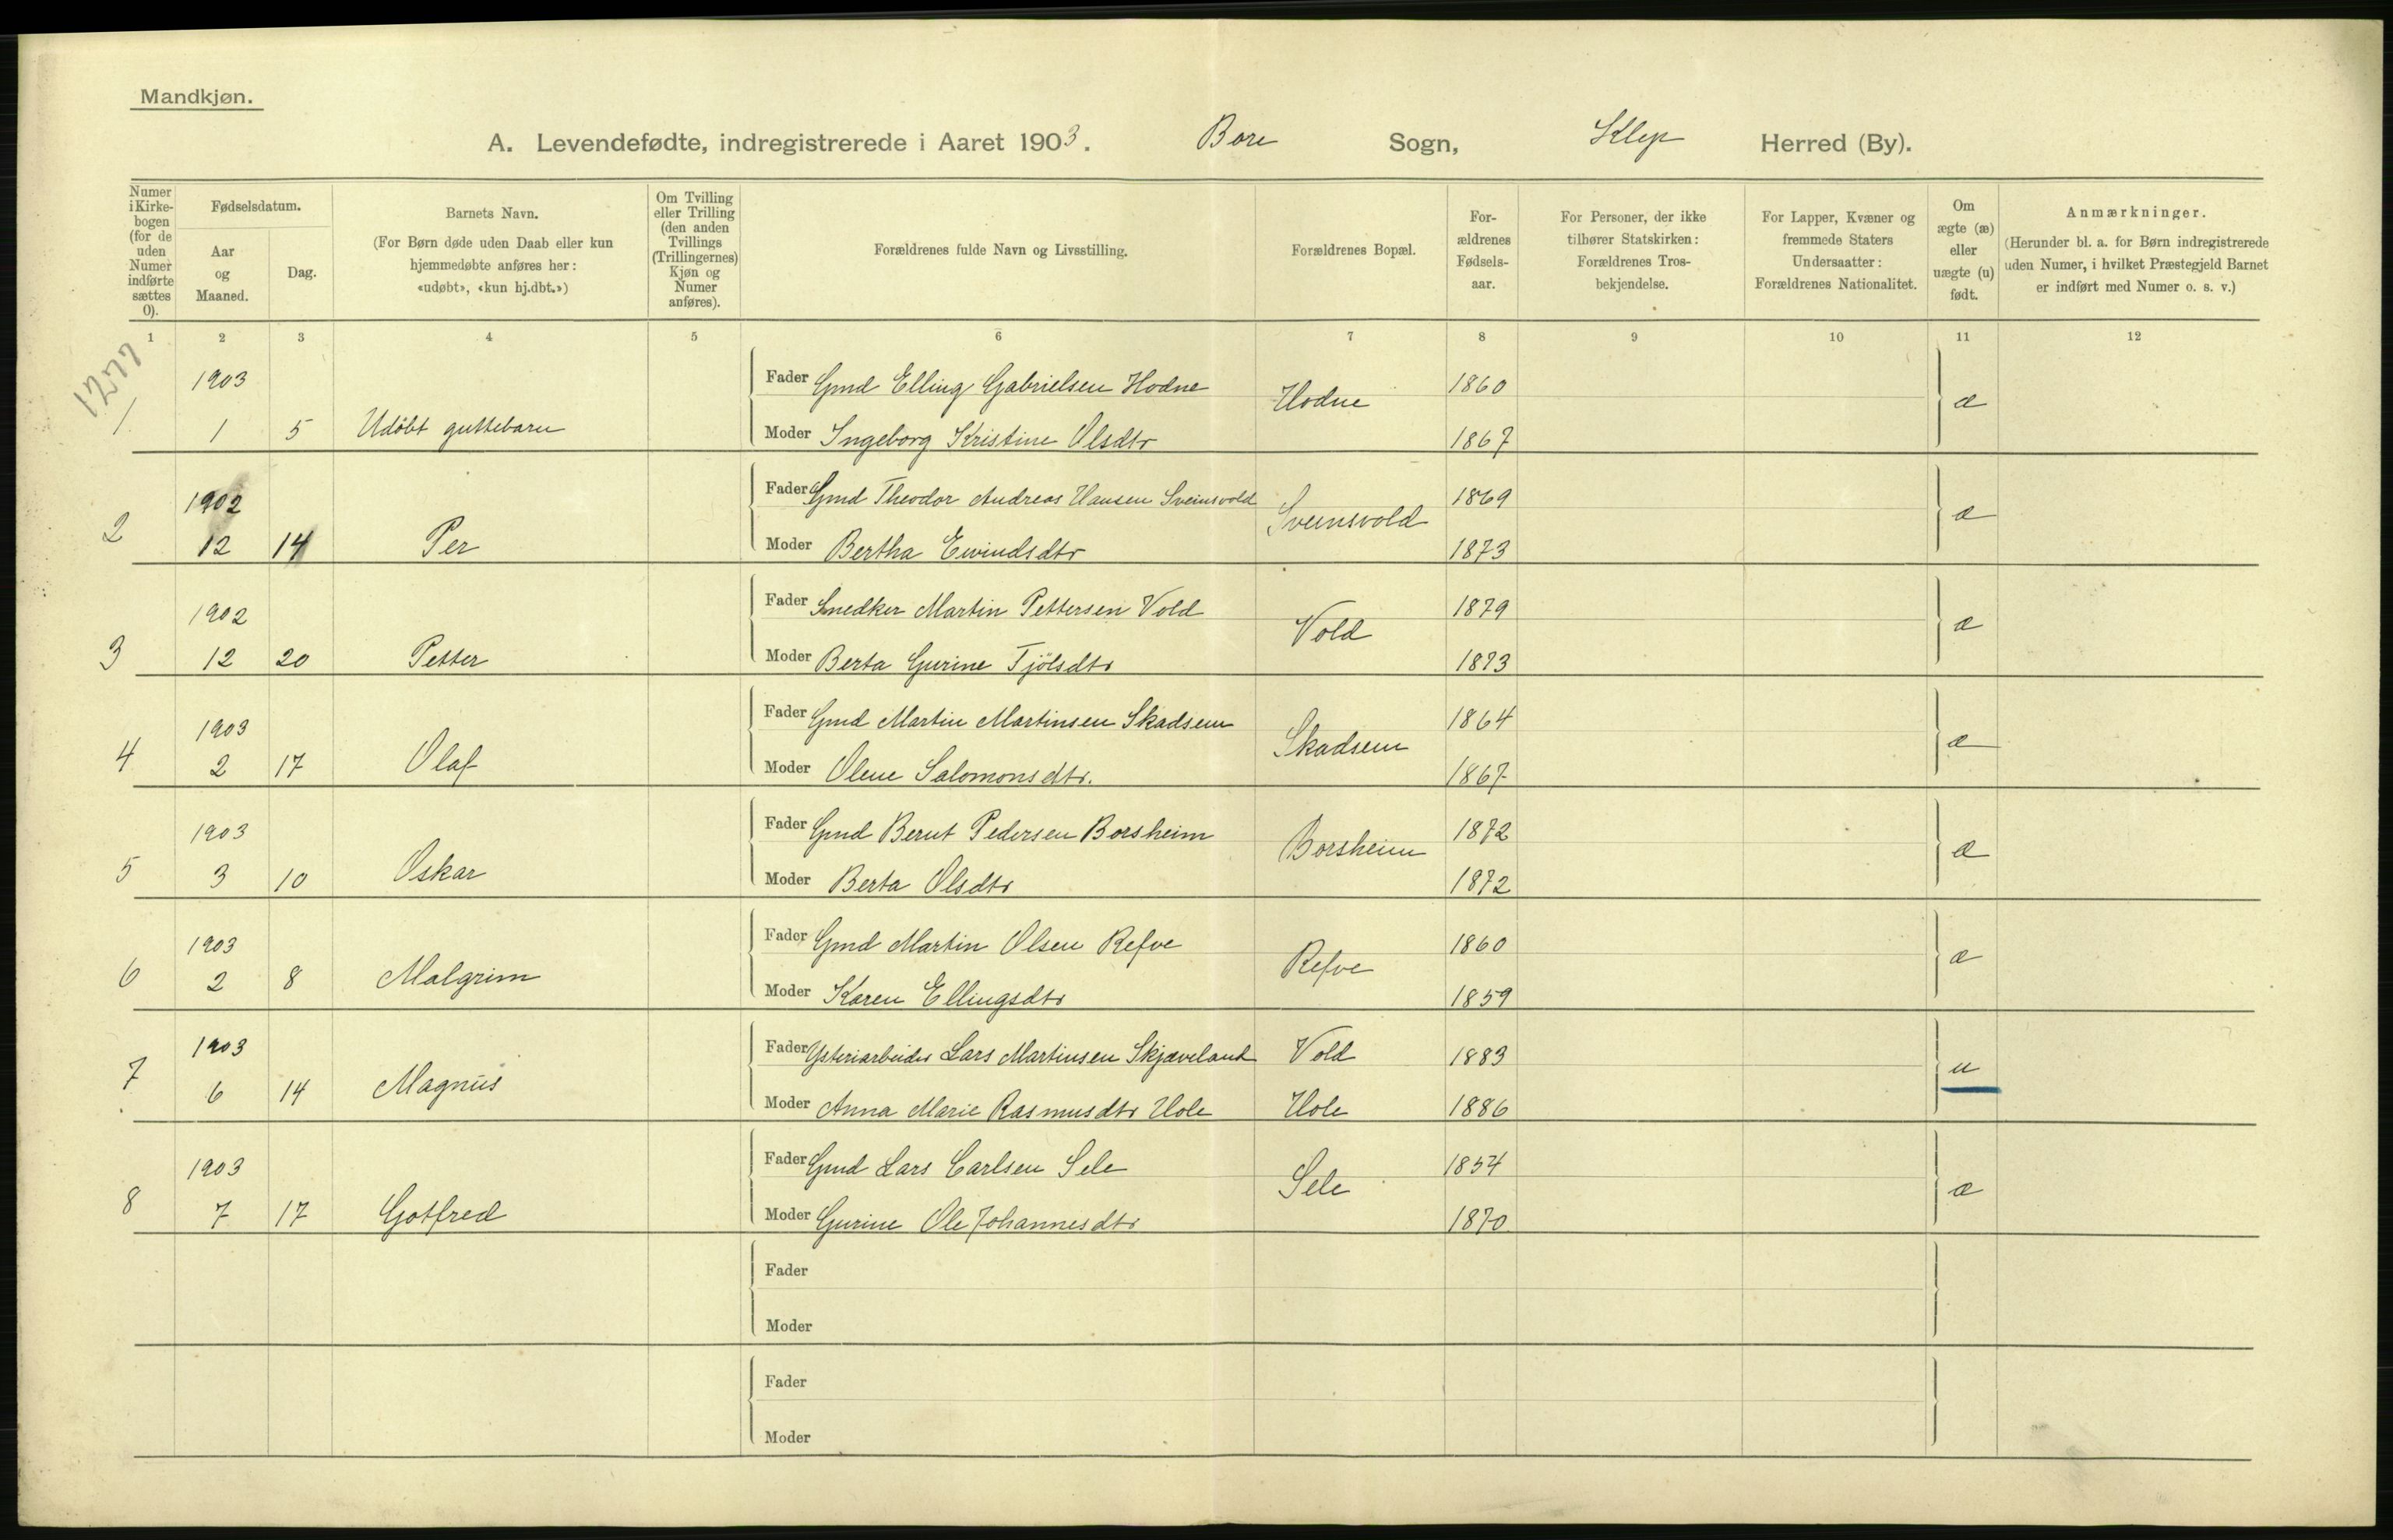 Mandkjøn.
A. Levendefødte, indregistrerede i Aaret 1903. Bore Sogn, Klep Herred (By).
Numer i Kirkebogen (for de uden Numer indførte sættes 0).
Fødselsdatum.
Aar og Maaned.
Dag.
Barnets Navn.
(For Børn døde uden Daab eller kun hjemmedøbte anføres her: «udøbt», «kun hj.dbt.»)
Om Tvilling eller Trilling (den anden Tvillings (Trillingernes) Kjøn og Numer anføres).
Forældrenes fulde Navn og Livsstilling.
Forældrenes Bopæl.
For-ældrenes Fødsels-aar.
For Personer, der ikke tilhører Statskirken: Forældrenes Tros-bekjendelse.
For Lapper, Kvæner og fremmede Staters Undersaatter: Forældrenes Nationalitet.
Om ægte (æ) eller uægte (u) født.
Anmærkninger.
(Herunder bl. a. for Børn indregistrerede uden Numer, i hvilket Præstegjeld Barnet er indført med Numer o. s. v.)
1 2 3 4 5 6 7 8 9 10 11 12
1277
1903 Fader Gmd Elling Gabrielsen Hodne Hodne 1860 æ
1. 1 5 Udöbt guttebarn Moder Ingeborg Kristine Olsdtr 1867
1902 Fader Gmd Theodor Andreas Hansen Sveinsvold Sveinsvold 1869 æ
2 12 14 Per Moder Bertha Eivindsdtr 1873
1902 Fader Snedker Martin Pettersen Vold Vold 1879 æ
3 12 20 Petter Moder Berta Gurine Tjölsdtr 1873
1903 Fader Gmd Martin Martinsen Skadsem Skadsem 1864 æ
4 2 17 Olaf Moder Olene Salomonsdtr. 1867
1903 Fader Gmd Bernt Pedersen Borsheim Borsheim 1872 æ
5 3 10 Oskar Moder Berta Olsdtr 1872
1903 Fader Gmd Martin Olsen Refve Refve 1860 æ
6 2 8 Malgrim Moder Karen Ellingsdtr 1859
1903 Fader Ysteriarbeider Lars Martinsen Skjæveland Vold 1883 u
7 6 14 Magnus Moder Anna Marie Rasmusdtr Hole Hole 1886
1903 Fader Gmd Lars Carlsen Sele Sele 1854 æ
8 7 17 Gotfred Moder Gurine Ole Johannesdtr 1870
Fader
Moder
Fader
Moder